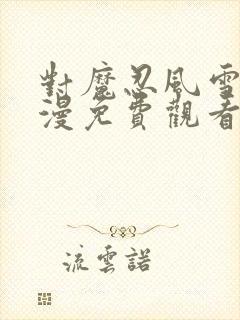 對魔忍風雪
漫免費觀看
流雲諾